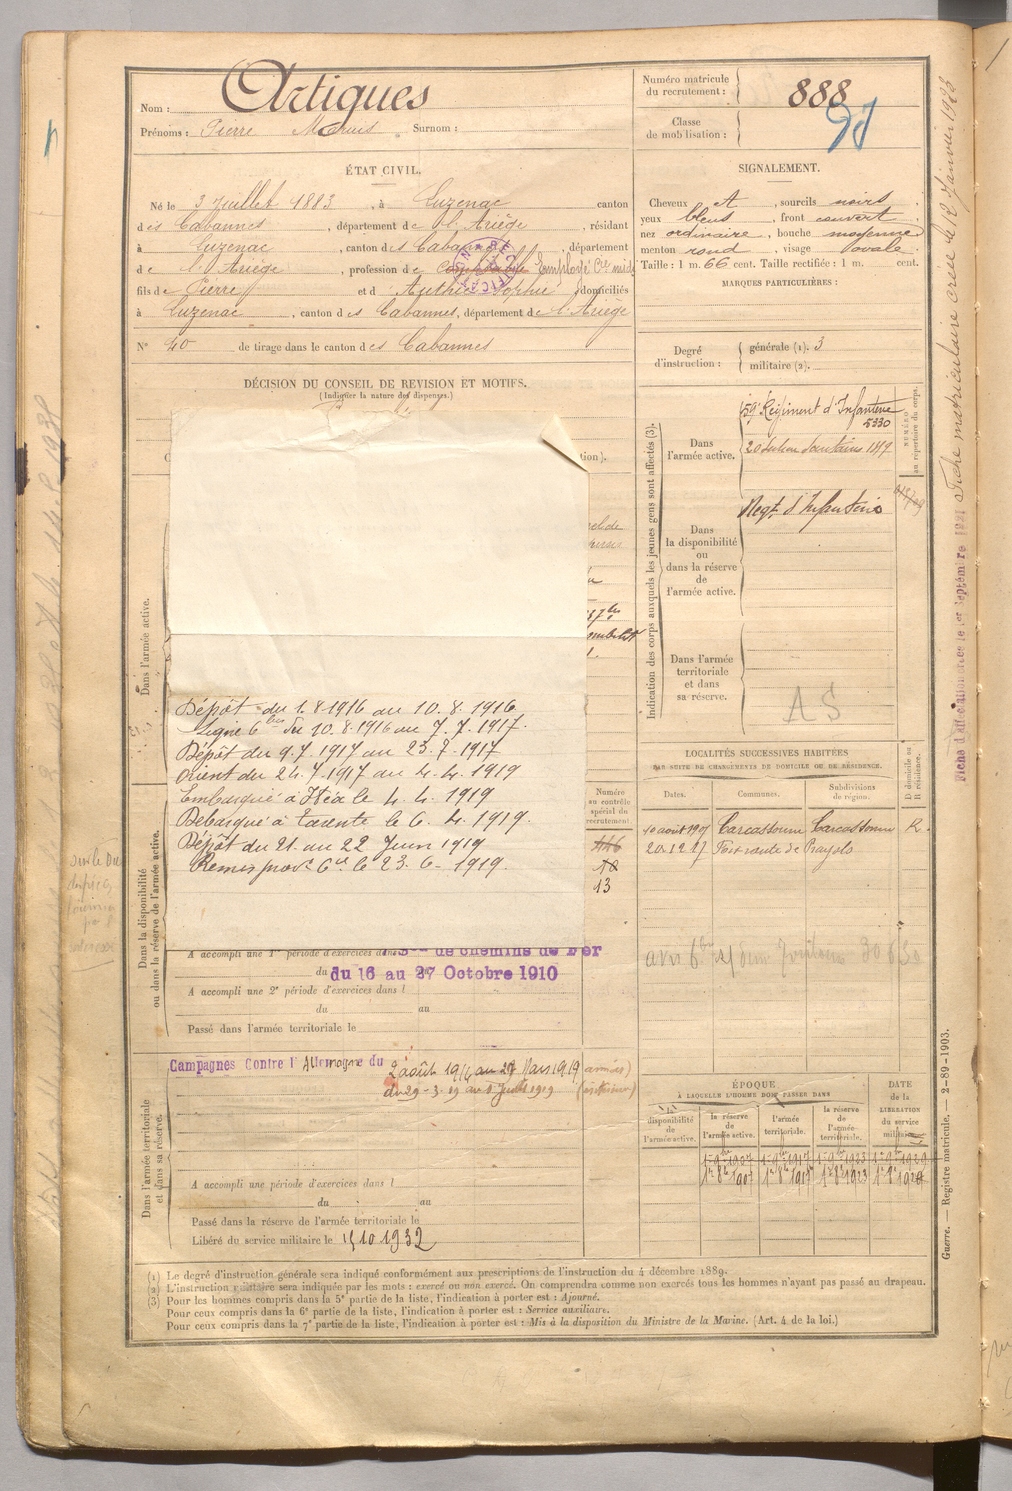 Nom : Artigues
Prénoms : Pierre Marius Surnom :
Numéro matricule
du recrutement : 888
Classe
de mobilisation :
ÉTAT CIVIL.
Né le 3 Juillet 1883, à Luzenac canton
des Cabannes, département de l'Ariège, résidant
à Luzenac, canton des Cabannes, département
de l'Ariège, profession de Employé Cie midi
fils de Pierre et d' Authié Sophie domiciliés
à Luzenac, canton des Cabannes, département de l'Ariège
N° 40 de tirage dans le canton des Cabannes
SIGNALEMENT.
Cheveux et, sourcils noirs
yeux bleus, front couvert
nez ordinaire, bouche moyenne
menton rond, visage ovale
Taille : 1 m. 66 cent. Taille rectifiée : 1 m. cent.
MARQUES PARTICULIÈRES :
Degré
d'instruction :
générale (1). 3
militaire (2).
DÉCISION DU CONSEIL DE REVISION ET MOTIFS.
(Indiquer la nature des dispenses.)
Indication des corps auxquels les jeunes gens sont affectés (3).
NUMÉRO
au répertoire du corps.
Dans
l'armée active.
59e Régiment d'Infanterie
5330
Dans
la disponibilité
ou
dans la réserve
de
l'armée active.
Regt. d'Infanterie
Dans l'armée
territoriale
et dans
sa réserve.
A S
Dans l'armée active.
Dépôt du 1.8.1916 au 10.8.1916
Ligne 6 bis du 10.8.1916 au 7.7.1917.
Dépôt du 9.7.1917 au 23.7.1917
Orient du 24.7.1917 au 4.4.1919
Embarqué à Itéa le 4.4.1919
Débarqué à Tarente le 6.4.1919.
Dépôt du 21 au 22 Juin 1919
LOCALITÉS SUCCESSIVES HABITÉES
PAR SUITE DE CHANGEMENTS DE DOMICILE OU DE RÉSIDENCE.
Dates.
Communes.
Subdivisions
de région.
D domicile ou
R résidence.
10 août 1907 Carcassonne Carcassonne R.
Numéro
au contrôle
spécial du
recrutement
13
Dans la disponibilité
ou dans la réserve de l'armée active.
A accompli une 1re période d'exercices dans Son de Chemins de Fer
du 16 au 27 Octobre 1910
A accompli une 2e période d'exercices dans l
du au
Passé dans l'armée territoriale le
Campagnes Contre l'Allemagne du 2 août 1914 au 29 Mars 1919
du 29-3-19 au 8 Juillet 1919 (intérieur)
Dans l'armée territoriale
et dans sa réserve.
A accompli une période d'exercices dans l
du au
Passé dans la réserve de l'armée territoriale le
Libéré du service militaire le 15 10 1932
ÉPOQUE
À LAQUELLE L'HOMME DOIT PASSER DANS
disponibilité
de
l'armée active.
la réserve
de
l'armée active.
l'armée
territoriale.
la réserve
de
l'armée
territoriale.
DATE
de la
LIBÉRATION
du service
militaire.
(1) Le degré d'instruction générale sera indiqué conformément aux prescriptions de l'instruction du 4 décembre 1889.
(2) L'instruction militaire sera indiquée par les mots : exercé ou non exercé. On comprendra comme non exercés tous les hommes n'ayant pas passé au drapeau.
(3) Pour les hommes compris dans la 5e partie de la liste, l'indication à porter est : Ajourné.
Pour ceux compris dans la 6e partie de la liste, l'indication à porter est : Service auxiliaire.
Pour ceux compris dans la 7e partie de la liste, l'indication à porter est : Mis à la disposition du Ministre de la Marine. (Art. 4 de la loi.)
Guerre. — Registre matricule. — 2-89-1903.
Fiche matriculaire créée le 12 Janvier 1923